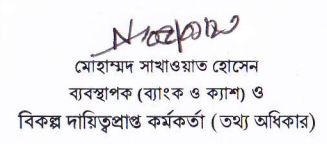 মোহাম্মদ সাখাওয়াত হোসেন
ব্যবস্থাপক (ব্যাংক ও ক্যাশ) ও
বিকল্প দায়িত্বপ্রাপ্ত কর্মকর্তা (তথ্য অধিকার)